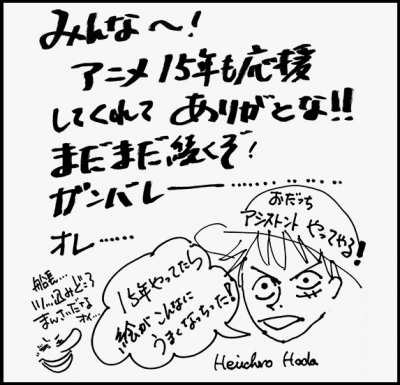 みんな〜!
アニメ15年も応援
してくれて ありがとな!!
まだまだ続くぞ!
ガンバレー………
オレ……
おだっち
アシストント やってやる!
15年やってたら
絵がこんなに
うまくなっちった!
船長…
ツッ…込みどころ
まんさいだなる
オイ…
Heiichiro Hoda